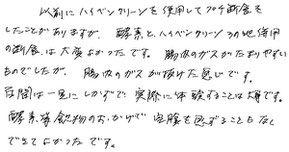 以前にハイペンクリーンを使用してプチ断食を
したことがありますが、酵素と、ハイペンクリーンの併用
の断食は大変よかったです。腸内のガスがたまりやすい
ものでしたが、腸内のガスが抜けた感じです。
百聞は一見にしかずで、実際に体験することは大事です。
酵素等飲物のおかげで空腹を感ずることもなく
できてよかったです。